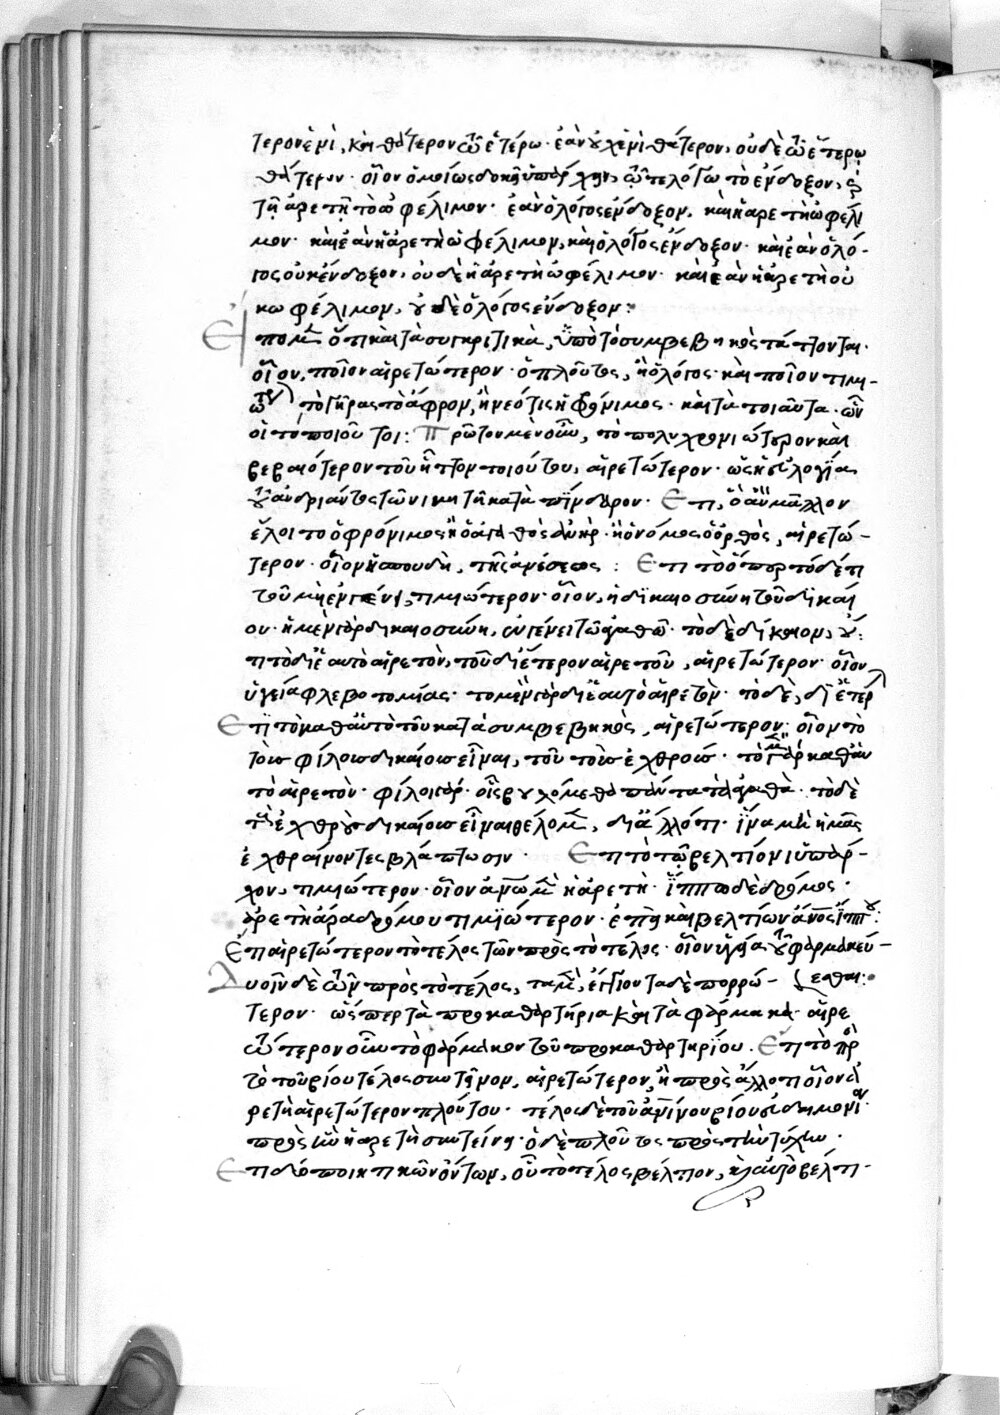 τερον ἐνὶ, καὶ θάτερον τῷ ἑτέρῳ· ἐὰν οὐχ ἑνὶ θάτερον, οὐδὲ τῷ ἑτέρῳ
θάτερον· οἷον ὁμοίως δοκεῖ ὑπάρχειν, τῷ τε λόγῳ τὸ ἔνδοξον, καὶ
τῇ ἀρετῇ τὸ ὠφέλιμον· ἐὰν ὁ λόγος ἔνδοξον, καὶ ἡ ἀρετὴ ὠφέλι
μον· καὶ ἐὰν ἡ ἀρετὴ ὠφέλιμον, καὶ ὁ λόγος ἔνδοξον· καὶ ἐὰν ὁ λό-
γος οὐκ ἔνδοξον, οὐδὲ ἡ ἀρετὴ ὠφέλιμον· καὶ ἐὰν ἡ ἀρετὴ οὐ
κ ὠφέλιμον, οὐδὲ ὁ λόγος ἔνδοξον:
Εἴπομεν ὅτι καὶ τὰ συγκριτικὰ, ὑπὸ τὸ συμβεβηκὸς τάττονται·
οἷον, ποῖον αἱρετώτερον· ὁ πλοῦτος, ἢ ὁ λόγος· καὶ ποῖον τιμι-
ώτερον, τὸ γῆρας τὸ ἄφρον, ἢ νεότης ἡ φρόνιμος· καὶ τὰ τοιαῦτα· ὧν
οἱ τόποι οὗτοι: Πρῶτον μὲν οὖν, τὸ πολυχρονιώτερον καὶ
βεβαιότερον τοῦ ἧττον τοιούτου, αἱρετώτερον· ὡς ἡ εὐλογία
τοῦ ἀνδριάντος τῶν νικητῇ κατὰ πίνδαρον· Ἔτι, ὃ ἂν μᾶλλον
ἕλοιτο ὁ φρόνιμος ἢ ὁ ἀγαθὸς ἀνὴρ· ἢ ὁ νόμος ὁ ὀρθὸς, αἱρετώ-
τερον· οἷον ἡ σπουδὴ, τῆς ἀνέσεως: Ἔτι τὸ ὅπερ τόδε τι
τοῦ μὴ ἐν γένει, τιμιώτερον· οἷον, ἡ δικαιοσύνη τοῦ δικαί
ου· ἡ μὲν γὰρ δικαιοσύνη, ἐν γένει τῷ ἀγαθῷ· τὸ δὲ δίκαιον, οὔ:
τι τὸ δι᾽ ἑαυτὸ αἱρετὸν, τοῦ δι᾽ ἕτερον αἱρετοῦ, αἱρετώτερον· οἷον
ὑγεία φλεβοτομίας· τὸ μὲν γὰρ δι᾽ ἑαυτὸ αἱρετὸν· τὸ δὲ, δι᾽ ἕτερον
Ἔτι τὸ καθ᾽ αὑτὸ τοῦ κατὰ συμβεβηκὸς, αἱρετώτερον: οἷον τὸ
τοὺς φίλους δικαίους εἶναι, τοῦ τοὺς ἐχθρούς· τὸ μὲν γὰρ καθ᾽ αὑ
τὸ αἱρετὸν· φίλοι γὰρ· οἷς εὐχόμεθα πάντα τὰ ἀγαθὰ· τὸ δὲ
τοὺς ἐχθροὺς δικαίους εἶναι θέλομεν, δι᾽ ἄλλό τι· ἵνα μὴ ἡμᾶς
ἐχθραίνοντες βλάπτωσιν· Ἔτι τὸ τῷ βελτίονι ὑπάρ-
χον, τιμιώτερον· οἷον ἀνῶν μὲν ἡ ἀρετὴ· ἵππω δὲ δρόμος·
ἀρετὴ ἄρα δρόμου τιμιώτερον· ἐπεὶ καὶ βελτίων ἄνος ἵππου:
Ἔτι αἱρετώτερον τὸ τέλος τῶν πρὸς τὸ τέλος· οἷον ὑγεία τοῦ φαρμακεύ-
εσθαι:
Δυοῖν δὲ ὧν πρὸς τὸ τέλος, τὰ μὲν, ἔγγιον τὰ δὲ πορρώ-
τερον· ὥσπερ τὰ προκαθαρτήρια καὶ τὰ φάρμακα· αἱρε
τώτερον οὖν τὸ φάρμακον τοῦ προκαθαρτηρίου. Ἔτι τὸ πρὸς
τὸ τοῦ βίου τέλος συντεῖνον, αἱρετώτερον, ἢ πρὸς ἄλλό τι οἷον ἀ
ρετὴ αἱρετώτερον πλούτου· τέλος δὲ τοῦ ἀνίνου βίου εὐδαιμονία·
πρὸς ἣν ἡ ἀρετὴ συντείνει· ὁ δὲ πλοῦτος πρὸς τὴν τύχην·
Ἔτι δύο ποιητικῶν ὄντων, οὗ τὸ τέλος βέλτιον, καὶ αὐτὸ βέλτι-